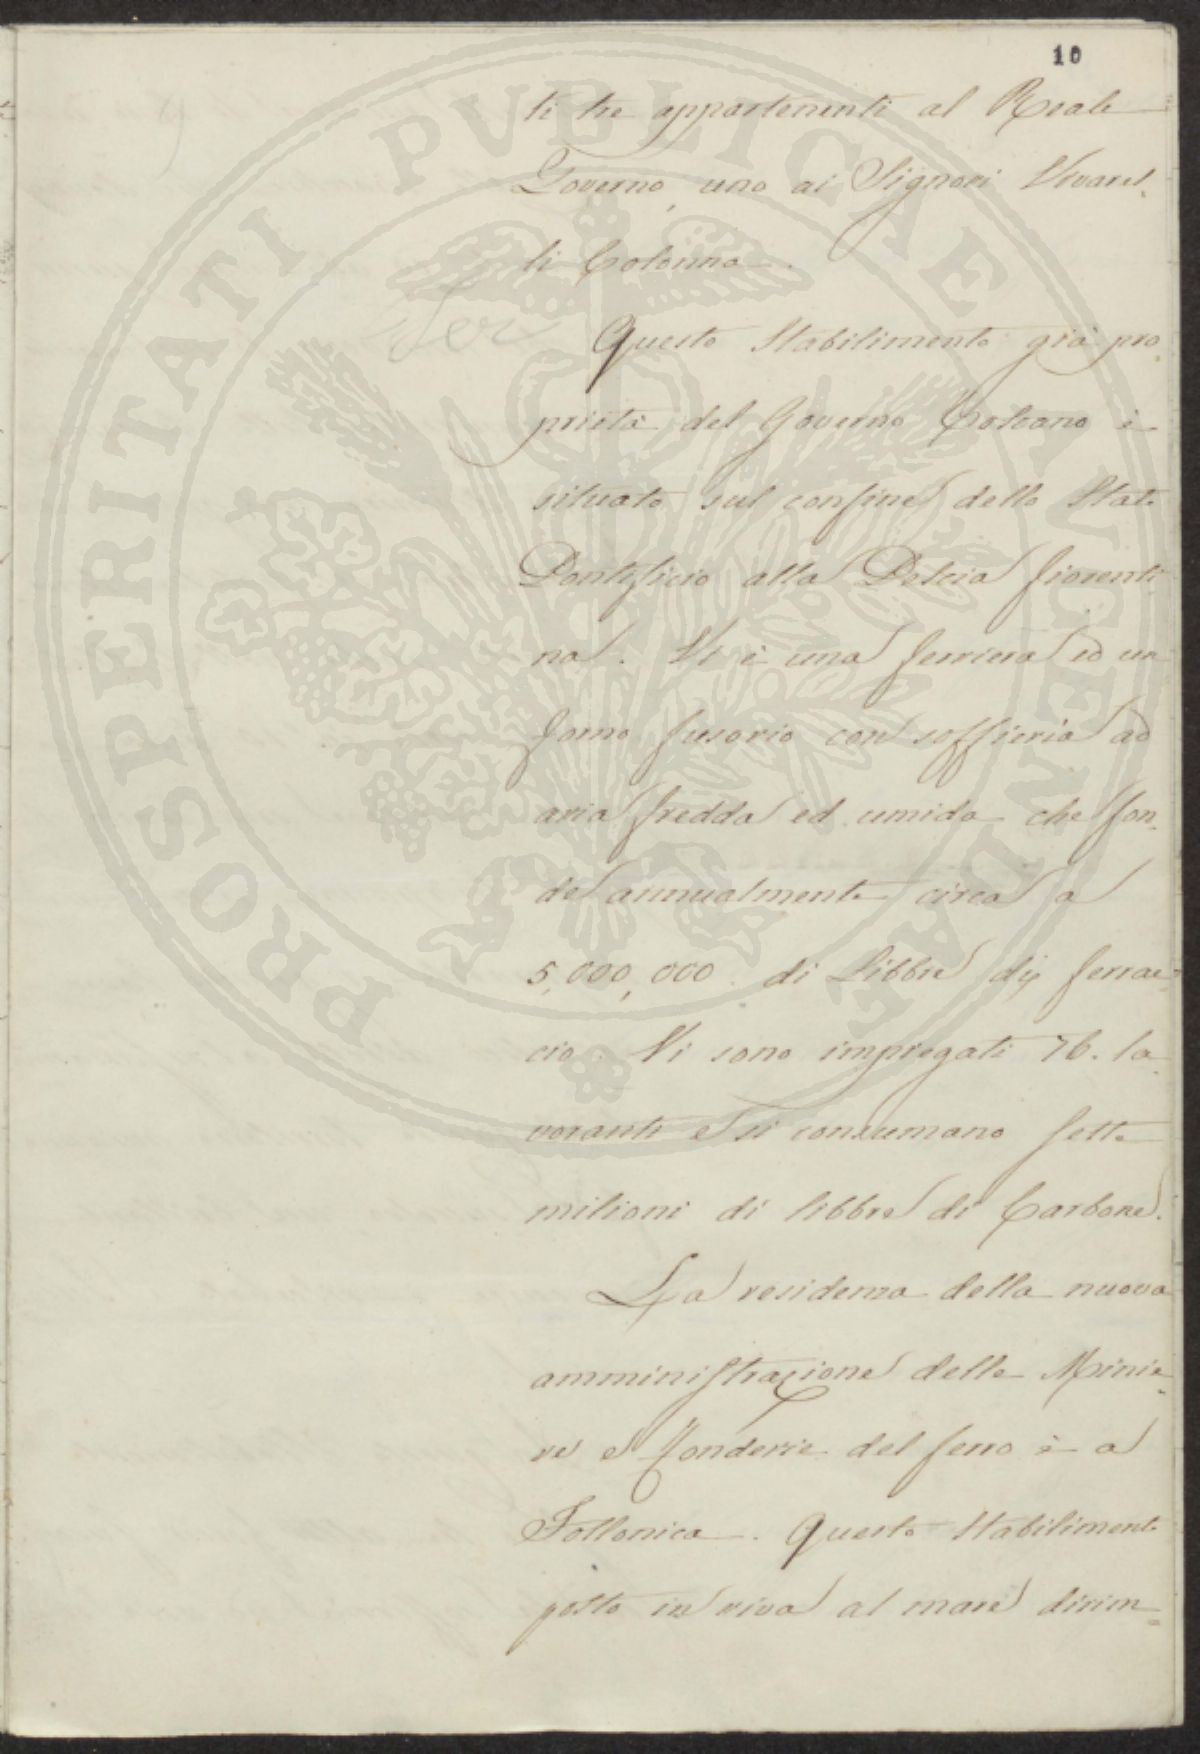 10
ti tre appartenenti al Reale
Governo, uno ai Signori Vivarel-
li Colonna.
Questo Stabilimento già pro-
prietà del Governo Toscano è
situato sul confine dello Stato
Pontificio alla Pescia fiorenti
na. Vi è una ferriera ed un
forno fusorio con soffieria ad
aria fredda ed umida che fon-
de annualmente circa a
5,000,000. di Libbre di ferrac-
cio. Vi sono impregati 76. la-
voranti e si consumano sette
milioni di libbre di Carbone.
La residenza della nuova
amministrazione delle Minie-
re e Fonderie del ferro è a
Follonica. Questo Stabilimento
posto in riva al mare dirim-
PROSPERITATI PVBLICAE AVGENDAE